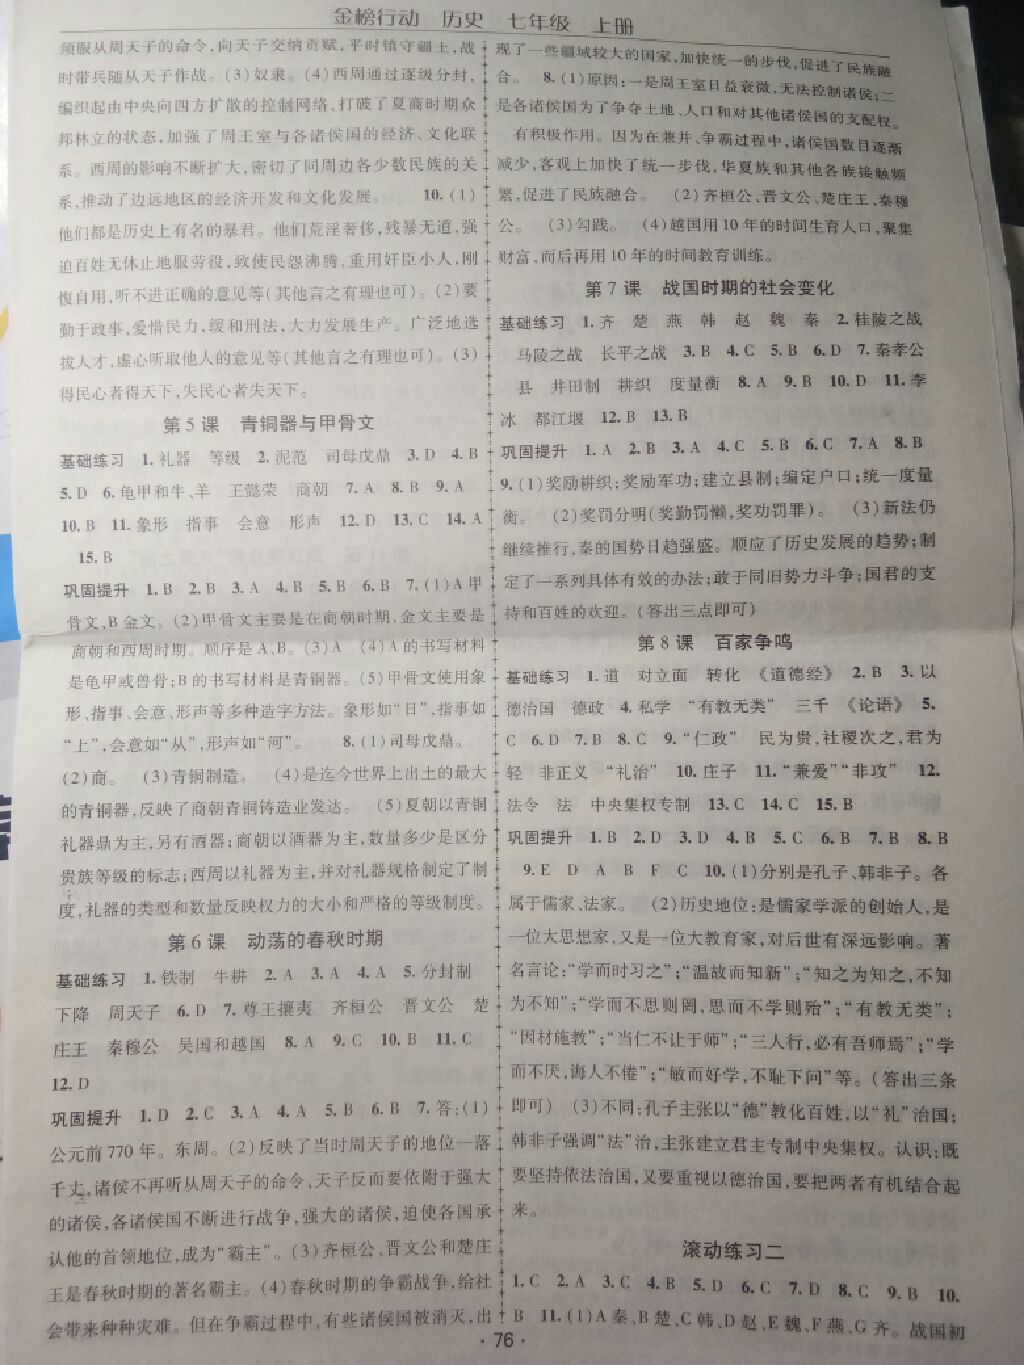 金榜行动　历史　七年级　上册
须服从周天子的命令,向天子交纳贡赋,平时镇守疆土,战
时带兵随从天子作战。(3)奴隶。(4)西周通过逐级分封,
编织起由中央向四方扩散的控制网络,打破了夏商时期众
邦林立的状态,加强了周王室与各诸侯国的经济、文化联
系。西周的影响不断扩大,密切了同周边各少数民族的关
系,推动了边远地区的经济开发和文化发展。　10.(1)
他们都是历史上有名的暴君。他们荒淫奢侈,残暴无道,强
迫百姓无休止地服劳役,致使民怨沸腾,重用奸臣小人,刚
愎自用,听不进正确的意见等(其他言之有理也可)。(2)要
勤于政事,爱惜民力,缓和刑法,大力发展生产。广泛地选
拔人才,虚心听取他人的意见等(其他言之有理也可)。(3)
得民心者得天下,失民心者失天下。
第5课　青铜器与甲骨文
基础练习　1.礼器　等级　2.泥范　司母戊鼎　3.D　4.B
5.D　6.龟甲和牛、羊　王懿荣　商朝　7.A　8.B　9.A
10.B　11.象形　指事　会意　形声　12.D　13.C　14.A
15.B
巩固提升　1.B　2.B　3.A　4.B　5.B　6.B　7.(1)A甲
骨文,B金文。(2)甲骨文主要是在商朝时期,金文主要是
商朝和西周时期。顺序是A、B。(3)A　(4)A的书写材料
是龟甲或兽骨;B的书写材料是青铜器。(5)甲骨文使用象
形、指事、会意、形声等多种造字方法。象形如“日”,指事如
“上”,会意如“从”,形声如“河”。　8.(1)司母戊鼎。
(2)商。　(3)青铜制造。　(4)是迄今世界上出土的最大
的青铜器,反映了商朝青铜铸造业发达。　(5)夏朝以青铜
礼器鼎为主,另有酒器;商朝以酒器为主,数量多少是区分
贵族等级的标志;西周以礼器为主,并对礼器规格制定了制
度,礼器的类型和数量反映权力的大小和严格的等级制度。
第6课　动荡的春秋时期
基础练习　1.铁制　牛耕　2.A　3.A　4.A　5.分封制
下降　周天子　6.D　7.尊王攘夷　齐桓公　晋文公　楚
庄王　秦穆公　吴国和越国　8.A　9.C　10.B　11.C
12.D
巩固提升　1.D　2.C　3.A　4.A　5.B　6.B　7.答:(1)
公元前770年。东周。(2)反映了当时周天子的地位一落
千丈,诸侯不再听从周天子的命令,天子反而要依附于强大
的诸侯,各诸侯国不断进行战争,强大的诸侯,迫使各国承
认他的首领地位,成为“霸主”。(3)齐桓公、晋文公和楚庄
王是春秋时期的著名霸主。(4)春秋时期的争霸战争,给社
会带来种种灾难。但在争霸过程中,有些诸侯国被消灭,出
现了一些疆域较大的国家,加快统一的步伐,促进了民族融
合。　8.(1)原因:一是周王室日益衰微,无法控制诸侯;二
是各诸侯国为了争夺土地、人口和对其他诸侯国的支配权。
有积极作用。因为在兼并、争霸过程中,诸侯国数目逐渐
减少,客观上加快了统一步伐,华夏族和其他各族接触频
繁,促进了民族融合。　(2)齐桓公、晋文公、楚庄王、秦穆
公。　(3)勾践。　(4)越国用10年的时间生育人口,聚集
财富,而后再用10年的时间教育训练。
第7课　战国时期的社会变化
基础练习　1.齐　楚　燕　韩　赵　魏　秦　2.桂陵之战
马陵之战　长平之战　3.B　4.C　5.B　6.D　7.秦孝公
县　井田制　耕织　度量衡　8.A　9.B　10.D　11.李
冰　都江堰　12.B　13.B
巩固提升　1.A　2.B　3.A　4.C　5.B　6.C　7.A　8.B
9.(1)奖励耕织;奖励军功;建立县制;编定户口;统一度量
衡。　(2)奖罚分明(奖勤罚懒,奖功罚罪)。　(3)新法仍
继续推行,秦的国势日趋强盛。顺应了历史发展的趋势;制
定了一系列具体有效的办法;敢于同旧势力斗争;国君的支
持和百姓的欢迎。(答出三点即可)
第8课　百家争鸣
基础练习　1.道　对立面　转化　《道德经》　2.B　3.以
德治国　德政　4.私学　“有教无类”　三千　《论语》　5.
C　6.D　7.B　8.C　9.“仁政”　民为贵,社稷次之,君为
轻　非正义　“礼治”　10.庄子　11.“兼爱”“非攻”　12.
法令　法　中央集权专制　13.C　14.C　15.B
巩固提升　1.B　2.D　3.D　4.B　5.C　6.B　7.B　8.B
9.E　D　A　B　F　C　10.(1)分别是孔子、韩非子。各
属于儒家、法家。　(2)历史地位:是儒家学派的创始人,是
一位大思想家,又是一位大教育家,对后世有深远影响。著
名言论:“学而时习之”;“温故而知新”;“知之为知之,不知
为不知”;“学而不思则罔,思而不学则殆”;“有教无类”;
“因材施教”;“当仁不让于师”;“三人行,必有吾师焉”;“学
而不厌,诲人不倦”;“敏而好学,不耻下问”等。(答出三条
即可)　(3)不同:孔子主张以“德”教化百姓,以“礼”治国;
韩非子强调“法”治,主张建立君主专制中央集权。认识:既
要坚持依法治国,又要重视以德治国,要把两者有机结合起
来。
滚动练习二
1.C　2.A　3.C　4.B　5.D　6.C　7.D　8.C　9.B　10.
B　11.(1)A秦、B楚、C韩、D赵、E魏、F燕、G齐。战国初
· 76 ·